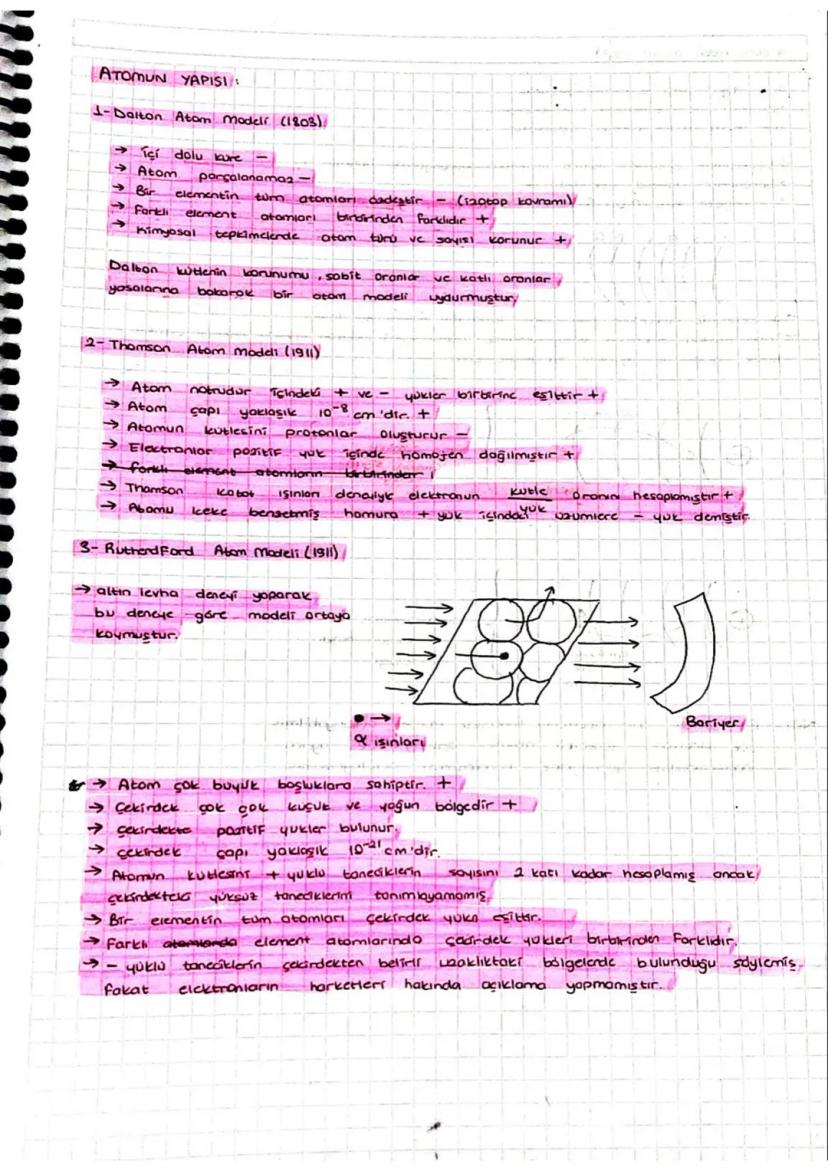 ATOMUN YAPISI:
1- Dalton Atom Modeli (1803)
→ İçi dolu küre –
→ Atom parçalanamaz –
→ Bir elementin tüm atomları özdeştir – (izotop kavramı)
→ Farklı element atomları birbirinden farklıdır +
→ Kimyasal tepkimelerde atom türü ve sayısı korunur +
Dalton kütlenin korunumu, sabit oranlar ve katlı oranlar
yasalarına bakarak bir atom modeli uydurmuştur
2- Thomson Atom modeli (1911)
→ Atom nötrudur içindeki + ve – yükler birbirine eşittir +
→ Atom çapı yaklaşık 10⁻⁸ cm'dir. +
→ Atomun kütlesini protonlar oluşturur –
→ Elektronlar pozitif yük içinde homojen dağılmıştır +
→ farklı element atomların birbirinden
→ Thomson katot ışınları deneyiyle elektronun kütle/yük oranını hesaplamıştır +
→ Atomu keke benzetmiş hamura + yük içindeki üzümlere – yük demiştir
3- Rutherdford Atom Modeli (1911)
→ altın levha deneyi yaparak
bu deneye göre modeli ortaya
koymuştur.
Bariyer
α ışınları
→ Atom çok büyük boşluklara sahiptir. +
→ Çekirdek çok çok küçük ve yoğun bölgedir +
→ çekirdekte pozitif yükler bulunur.
→ çekirdek çapı yaklaşık 10⁻²¹ cm'dir.
→ Atomun kütlesini + yüklü taneciklerin sayısını 2 katı kadar hesaplamış ancak
çekirdekteki yüksüz taneciklerini tanımlayamamış
→ Bir elementin tüm atomları çekirdek yükü eşittir.
→ Farklı atomlarda element atomlarında çekirdek yükleri birbirinden farklıdır.
→ – yüklü taneciklerin çekirdekten belirli uzaklıktaki bölgelerde bulunduğu söylemiş
fakat elektronların harketleri hakında açıklama yapmamıştır.